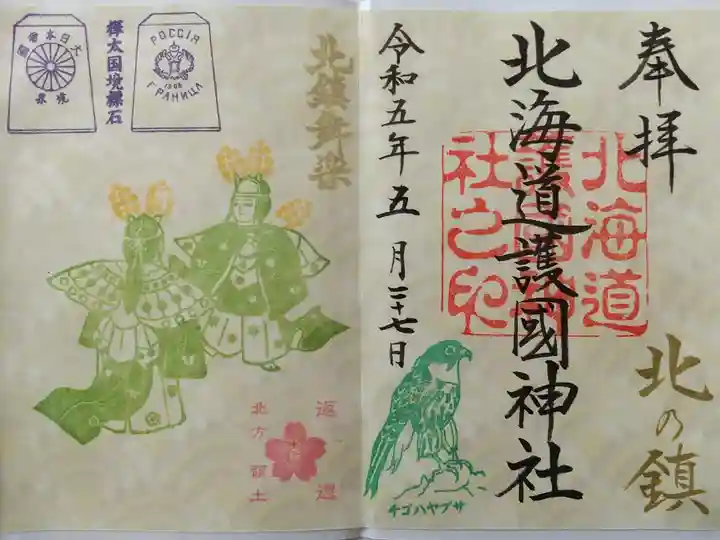 奉拝
北の鎮
北海道護國神社
北海道護國神社之印
令和五年五月二十七日
チゴハヤブサ
北鎮舞楽
РОССІЯ
1906
ГРАНИЦА
樺太国境標石
大日本帝國
境界
返還
北方領土